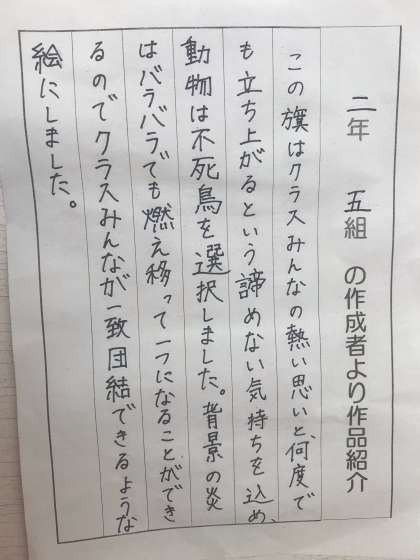 二年 五組 の作成者より作品紹介
この旗はクラスみんなの熱い思いと、何度で
も立ち上がるという諦めない気持ちを込め、
動物は不死鳥を選択しました。背景の炎
はバラバラでも燃え移って一つになることができ
るのでクラスみんなが一致団結できるような
絵にしました。